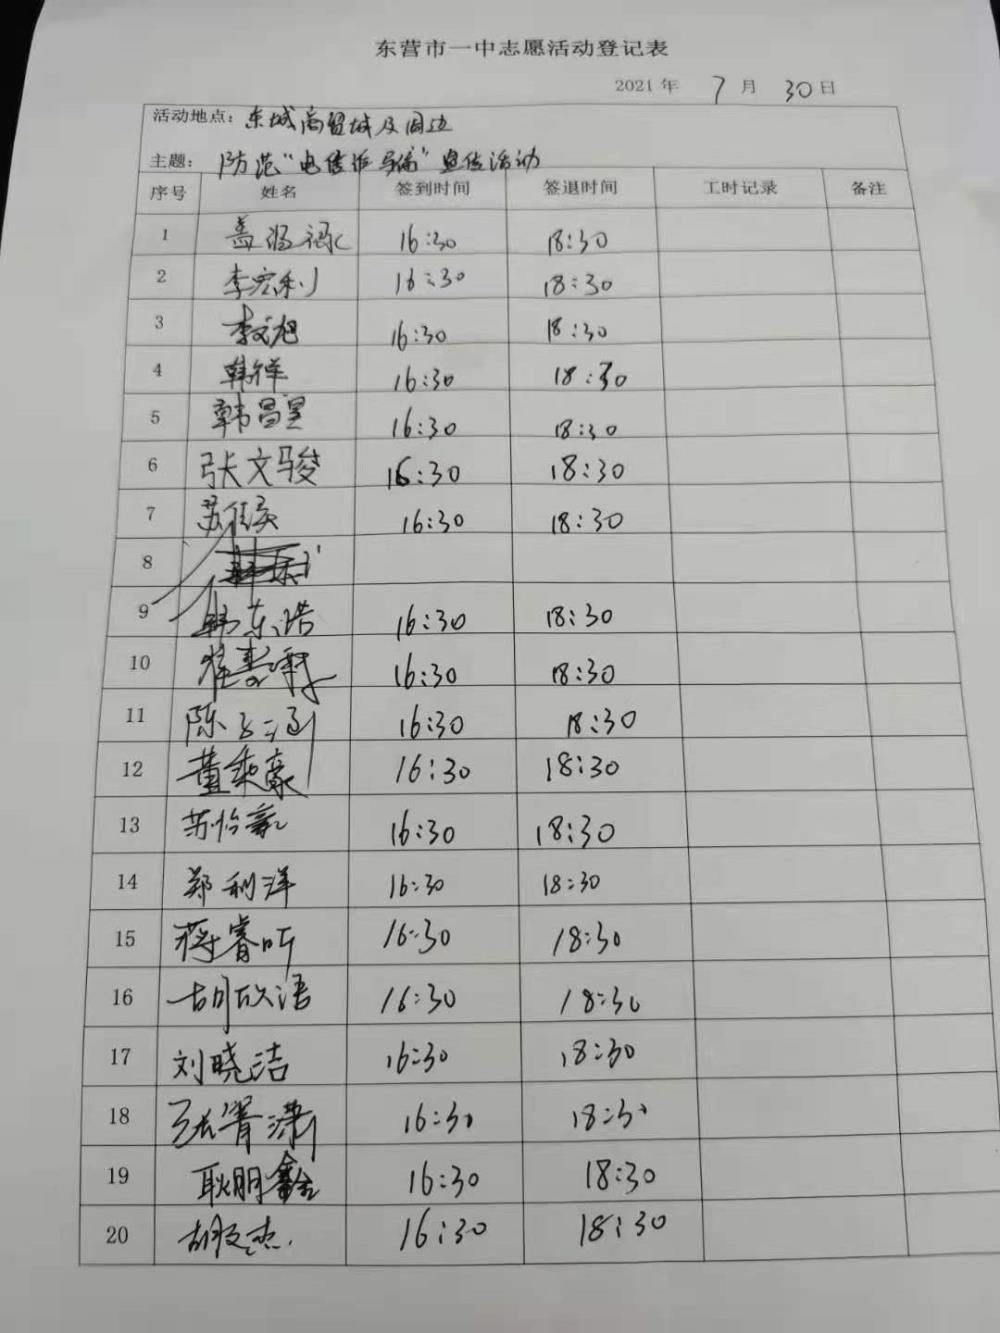 东营市一中志愿活动登记表
2021 年 7 月 30 日
活动地点: 东城商贸城及周边
主题: 防范"电信诈骗"宣传活动
序号 姓名 签到时间 签退时间 工时记录 备注
1 16:30 18:30
2 李宏利 16:30 18:30
3 李文旭 16:30 18:30
4 韩祥 16:30 18:30
5 韩昌昱 16:30 18:30
6 张文骏 16:30 18:30
7 苏佳奕 16:30 18:30
8
9 韩东浩 16:30 18:30
10 16:30 18:30
11 陈 16:30 18:30
12 董乘豪 16:30 18:30
13 苏怡豪 16:30 18:30
14 郑利洋 16:30 18:30
15 蒋睿昕 16:30 18:30
16 胡欣语 16:30 18:30
17 刘晓洁 16:30 18:30
18 16:30 18:30
19 耿明鑫 16:30 18:30
20 16:30 18:30